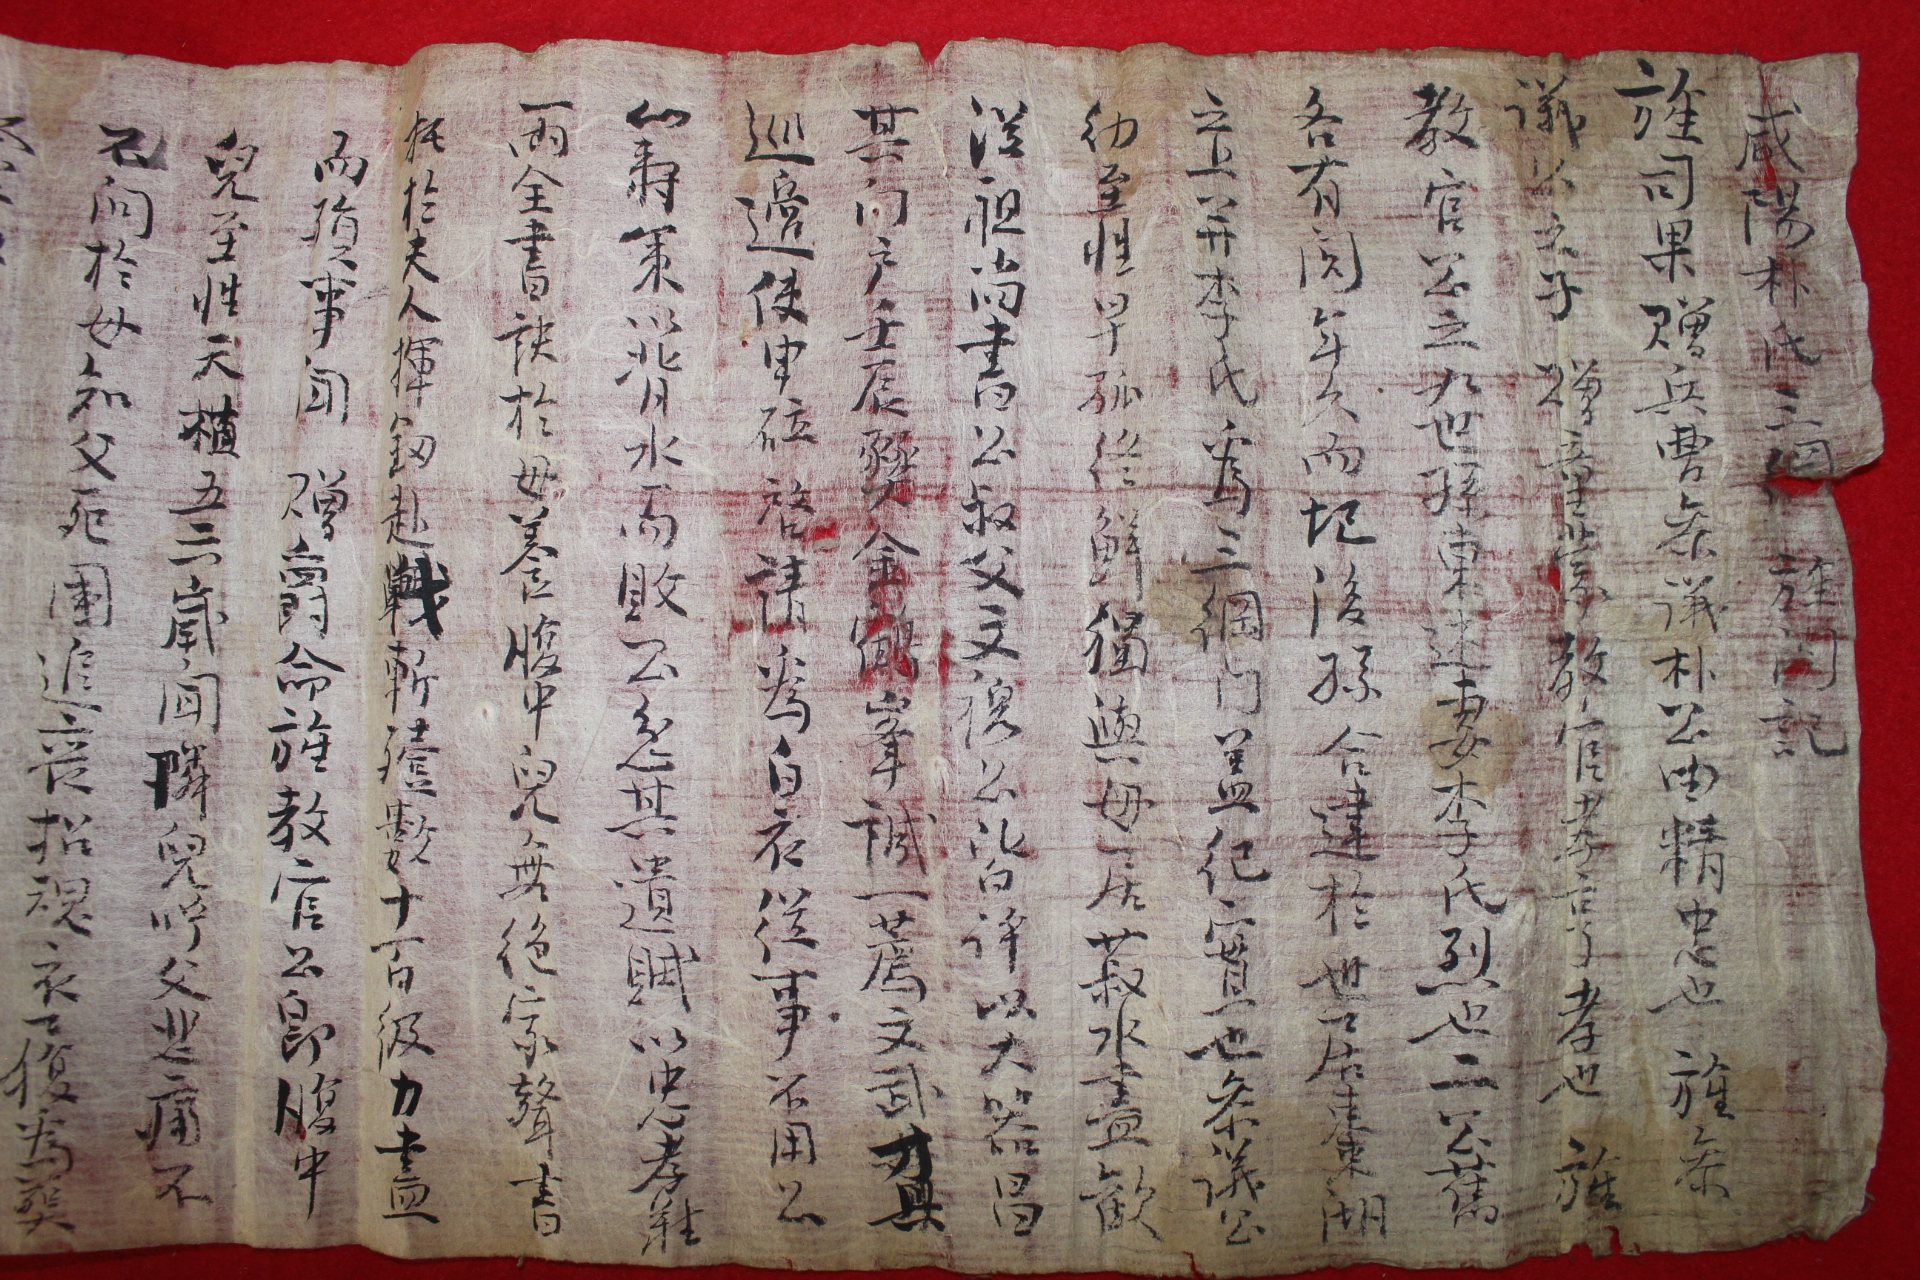 咸陽朴氏三綱 旌閭記
旌司果 贈兵曹參議朴公由精忠也 旌參
議公之子 贈童蒙教官孝亨孝也 旌
教官公之九世孫東述妻李氏烈也二公舊
各有閭年久而圮後孫合建於世居東湖
之上并李氏爲三綱門盖紀實也參議公
幼至性早孤終鮮獨與母居菽水盡歡
從祖尚書公叔父文穆公必許以大器昌
其門戶壬辰變金鶴峯誠一薦文武才具
巡邊使申砬啓請爲白衣從事不用公
以籌策以背水而敗公忿其遺賊以忠孝難
兩全書訣於母養腹中兒無絶宗聲書
托於夫人揮劒赴戰斬殪數十百級力盡
而殞事聞 贈爵命旌教官公卽腹中
兒至性天植五六歲聞隣兒呼父悲痛不
已問於母知父死圖追喪招魂衣復爲葬